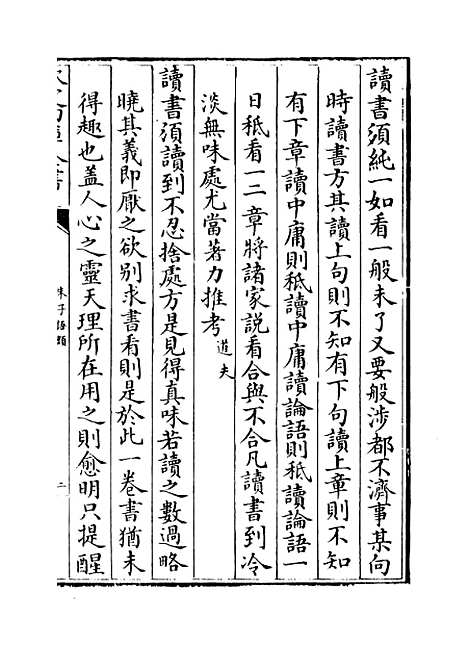 讀書須純一如看一般未了又要般涉都不濟事某向
時讀書方其讀上句則不知有下句讀上章則不知
有下章讀中庸則秪讀中庸讀論語則秪讀論語一
日秪看一二章將諸家說看合與不合凡讀書到冷
淡無味處尤當著力推考道夫
讀書須讀到不忍捨處方是見得真味若讀之數過略
曉其義即厭之欲别求書看則是於此一卷書猶未
得趣也盖人心之靈天理所在用之則愈明只提醒
朱子語類
二